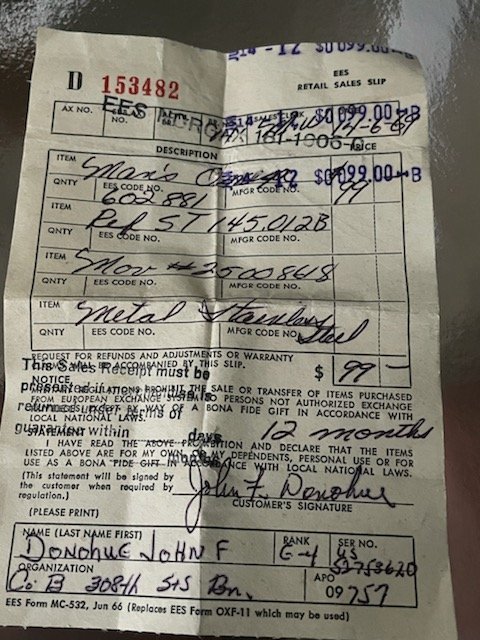 $0099.00
EES
RETAIL SALES SLIP
D 153482
AX NO. EES NO. SALES CLERK $0099.00
EES 12-6-67
DESCRIPTION PRICE
ITEM Man's Omega 99
$0099.00
QNTY EES CODE NO. MFGR CODE NO.
602881
ITEM Ref ST 145.012B
QNTY EES CODE NO. MFGR CODE NO.
ITEM Mov # 2500848
QNTY EES CODE NO. MFGR CODE NO.
ITEM Metal Stainless Steel
QNTY EES CODE NO. MFGR CODE NO.
REQUEST FOR REFUNDS AND ADJUSTMENTS OR WARRANTY
CLAIMS MUST BE ACCOMPANIED BY THIS SLIP. $ 99 -
This Sales Receipt must be
NOTICE
PROHIBIT THE SALE OR TRANSFER OF ITEMS PURCHASED
FROM EUROPEAN EXCHANGE SYSTEM TO PERSONS NOT AUTHORIZED EXCHANGE
BY WAY OF A BONA FIDE GIFT IN ACCORDANCE WITH
LOCAL NATIONAL LAWS.
guarantee within days 12 months
STATEMENT
I HAVE READ THE ABOVE PROHIBITION AND DECLARE THAT THE ITEMS
LISTED ABOVE ARE FOR MY OWN, OR MY DEPENDENTS, PERSONAL USE OR FOR
USE AS A BONA FIDE GIFT IN ACCORDANCE WITH LOCAL NATIONAL LAWS.
(This statement will be signed by
the customer when required by
regulation.)
John F. Donohue
CUSTOMER'S SIGNATURE
(PLEASE PRINT)
NAME (LAST NAME FIRST) RANK SER NO.
DONOHUE JOHN F E-4 US
52753620
ORGANIZATION APO
Co. B 308th S+S Bn. 09 757
EES Form MC-532, Jun 66 (Replaces EES Form OXF-11 which may be used)